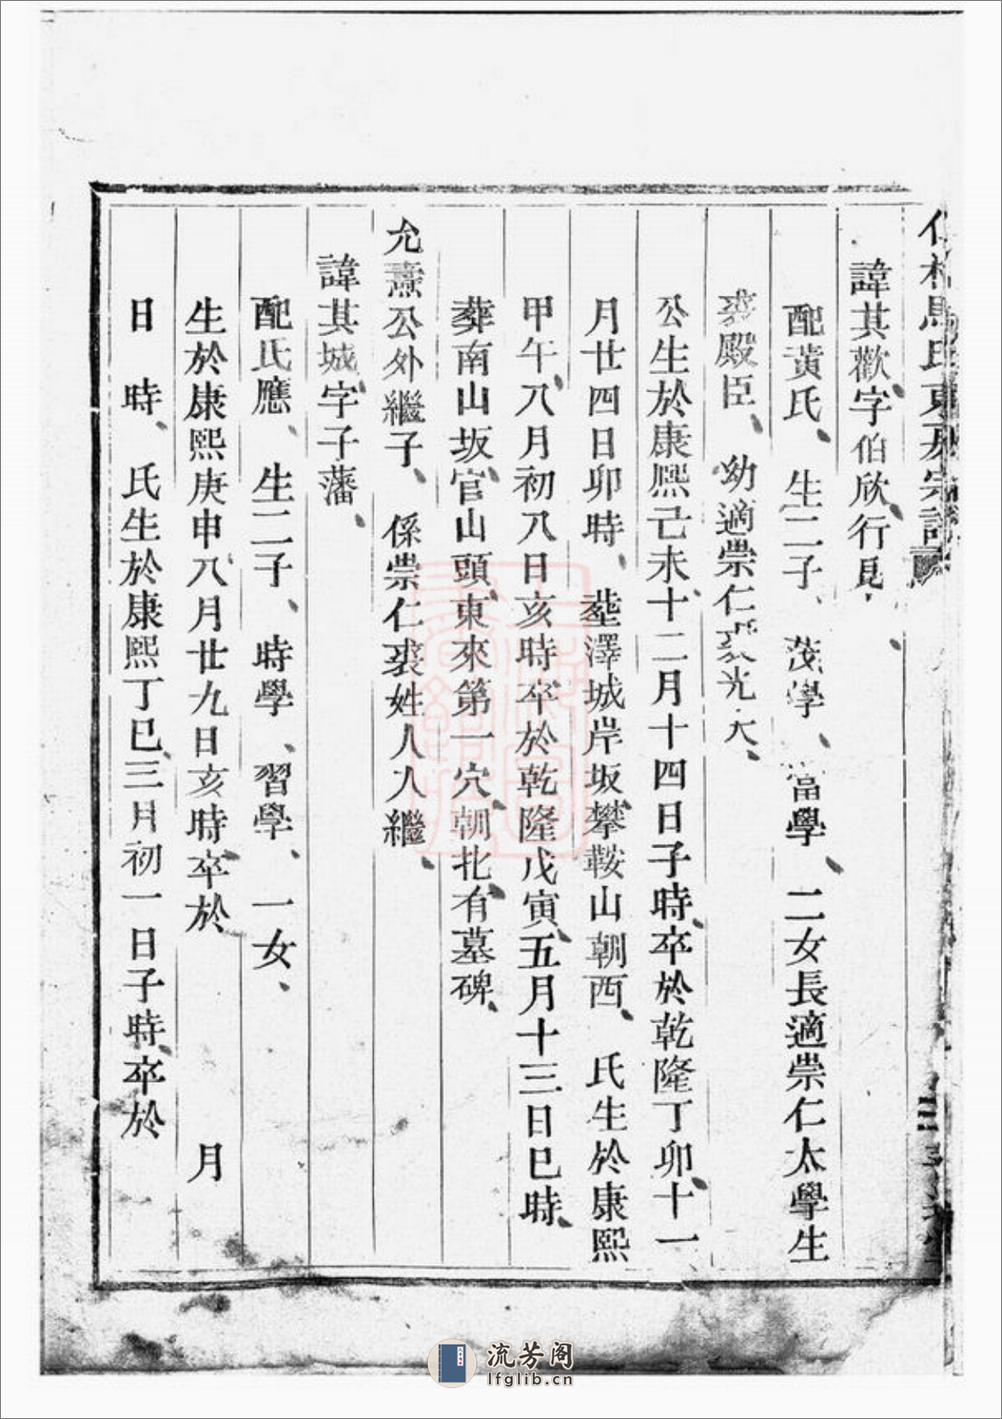 村馬氏東房宗譜
諱其歡字伯欣行
配黃氏、生二子、茂學、富學、二女長適崇仁太學生
裘殿臣、幼適崇仁裘光大、
公生於康熙己未十二月十四日子時卒於乾隆丁卯十一
月廿四日卯時、塟澤城岸坂攀鞍山朝西、氏生於康熙
甲午八月初八日亥時卒於乾隆戊寅五月十三日巳時、
葬南山坂官山頭東來第一穴朝北有墓碑、
允燾公外繼子、係崇仁裘姓人入繼、
諱其城字子藩、
配氏應、生二子、時學、習學、一女、
生於康熙庚申八月廿九日亥時卒於 月
日 時、氏生於康熙丁巳三月初一日子時卒於
流芳阁
lfglib.cn